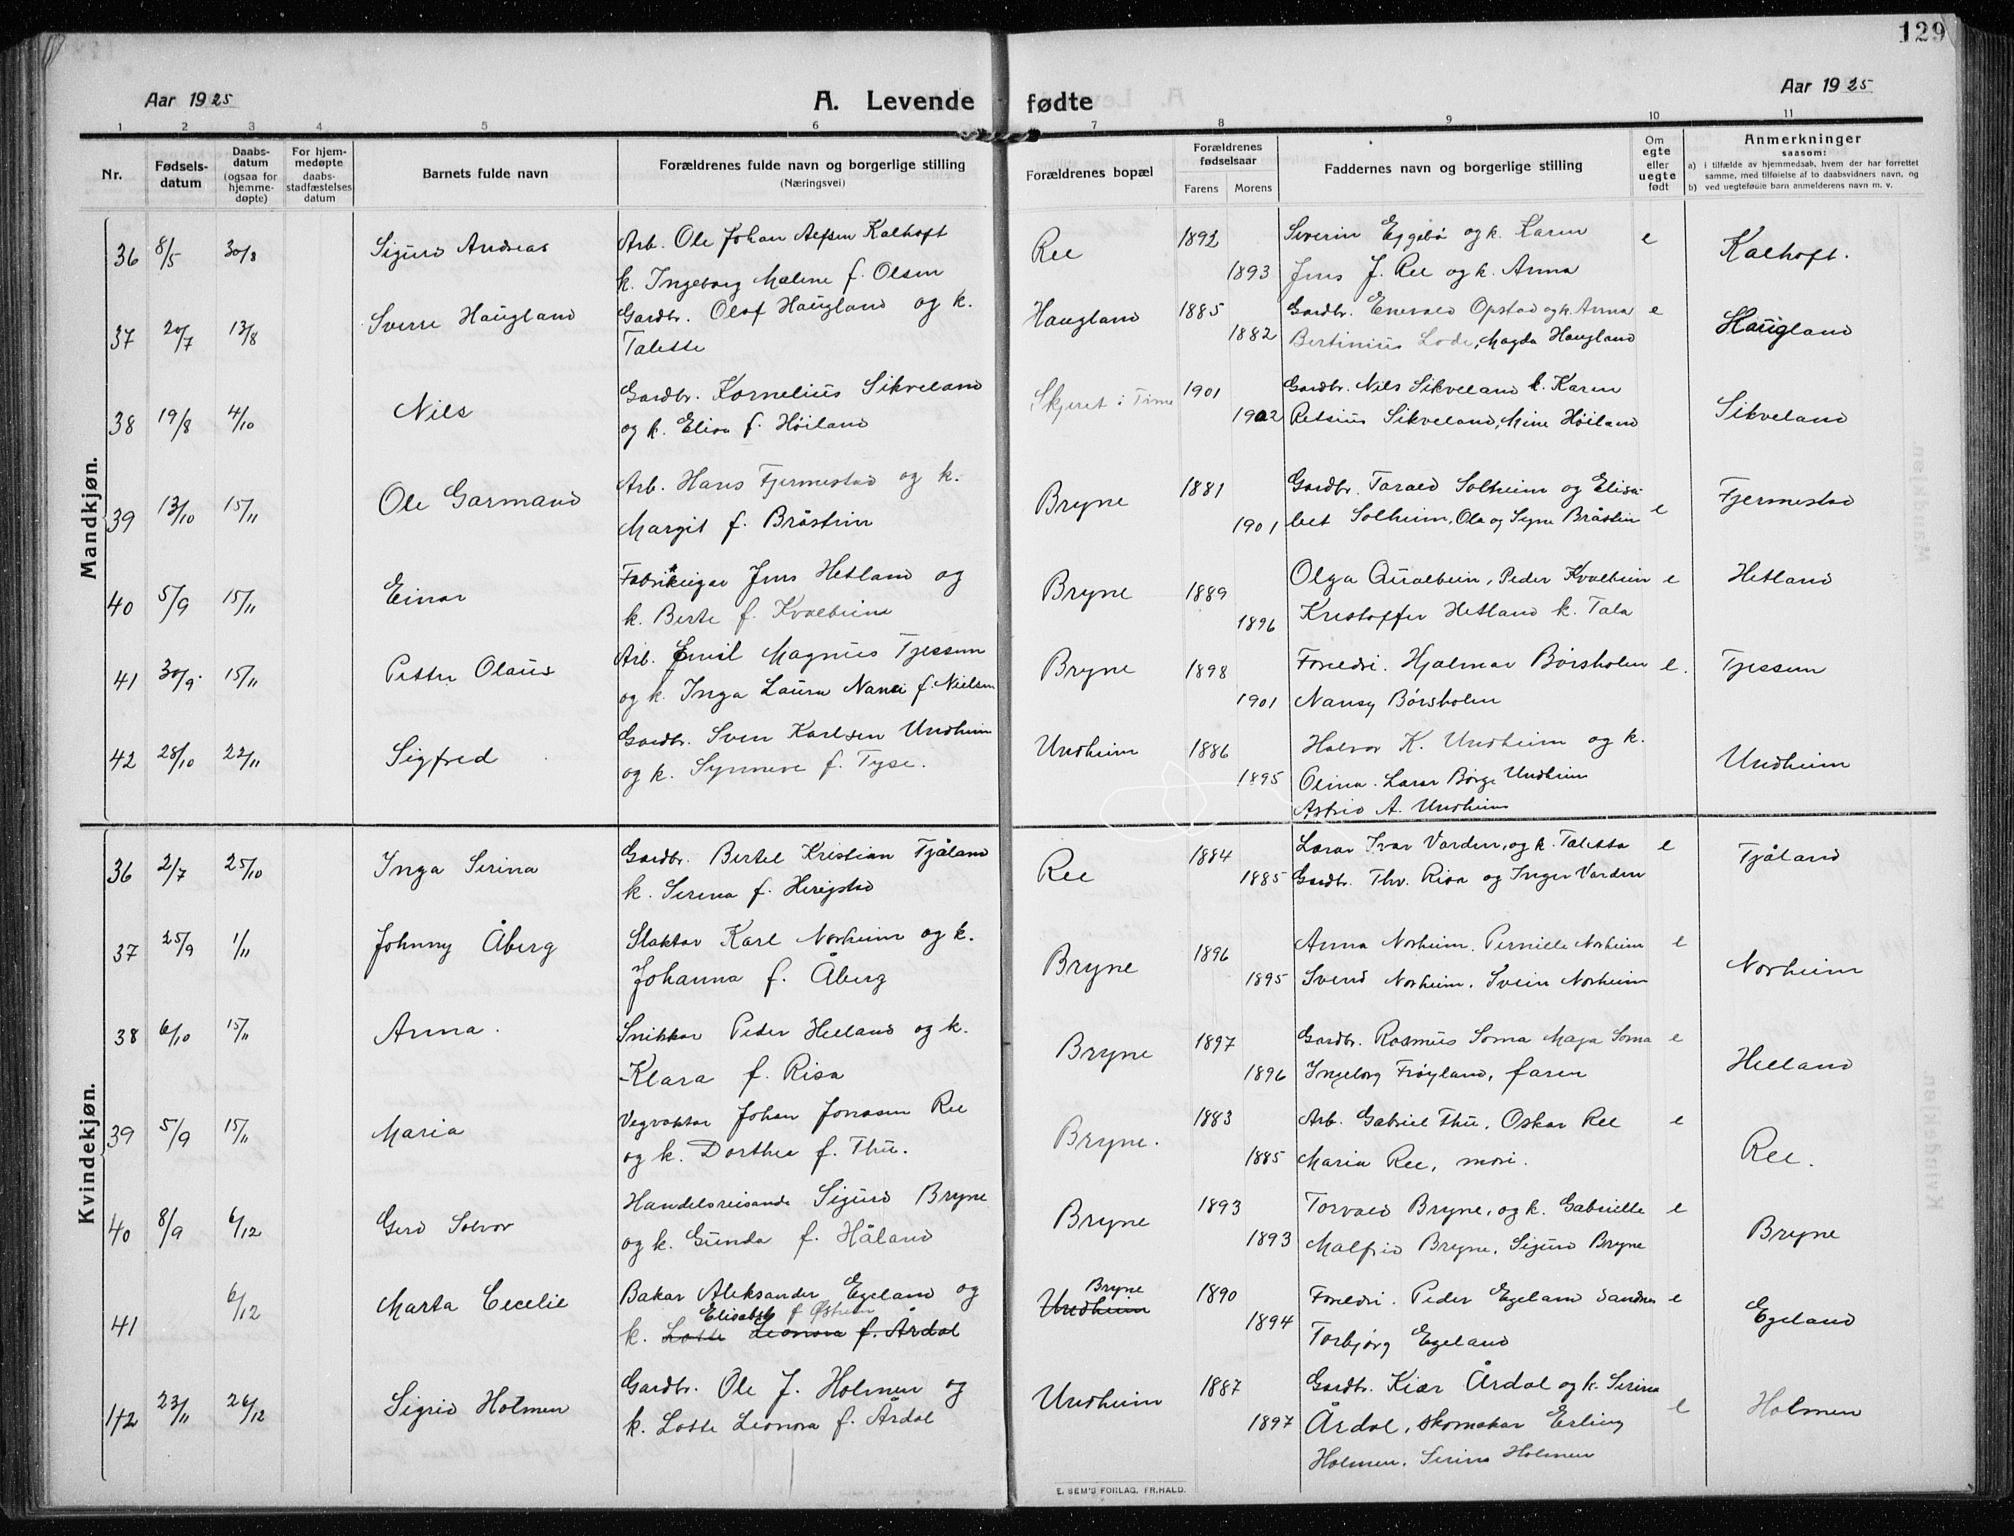 129
Aar 1925
A. Levende fødte
Aar 1925
1 2 3 4 5 6 7 8 9 10 11
Nr.
Fødsels-datum
Daabs-datum (ogsaa for hjemme-døpte)
For hjem-medøpte daabs-stadfæstelses datum
Barnets fulde navn
Forældrenes fulde navn og borgerlige stilling
(Næringsvei)
Forældrenes bopæl
Forældrenes fødselsaar
Farens Morens
Faddernes navn og borgerlige stilling
Om egte eller uegte født
Anmerkninger
saasom:
a) i tilfælde av hjemmedaab, hvem der har forrettet
samme, med tilføielse af to daabsvidners navn, og
b) ved uegtefødte barn anmelderens navn m. v.
Mandkjøn.
36 8/5 30/8 Sigurd Andreas Arb. Ole Johan Alfsen Kalhoft Ree 1892 Severin Eggebø og k. Karen e Kalhoft.
k. Ingeborg Malene f. Olsen 1893 Jens J. Ree og k. Anna
37 20/7 13/8 Sverre Haugland Gardbr. Olaf Haugland og k. Haugland 1885 Gardbr. Enevald Opstad og k. Anna e Haugland
Talette 1882 Bertinius Lode, Magda Haugland
38 19/8 4/10 Nils Gardbr. Kornelius Sikveland Skjeret i Time 1901 Gardbr. Nils Sikveland k. Karen Sikveland
og k. Elisa f. Høiland 1902 Retsius Sikveland, Mine Høiland
39 13/10 15/11 Ole Garmand Arb. Hans Fjermestad og k. Bryne 1881 Gardbr. Tarald Solheim og Elisa- e Fjermestad
Margit f. Bråstein 1901 bet Solheim, Ola og Syne Bråstein
40 5/9 15/11 Einar Fabrikeigar Jens Hetland og Bryne 1889 Olga Qualbein, Peder Kvalbein e Hetland
k. Berte f. Kvalbeina 1896 Kristoffer Hetland k. Tala
41 30/9 15/11 Petter Olaus Arb. Emil Magnus Tjessem Bryne 1898 Foreldri. Hjalmar Børsholm e. Tjessem
og k. Inga Laura Nanci f. Nielsen 1901 Nansy Børsholm
42 28/10 22/11 Sigfred Gardbr. Sven Karlsen Undheim Undheim 1886 Halvor K. Undheim og k. Undheim
og k. Synneve f. Tyse. 1895 Olina. Lærar Børge Undheim
Astrid A. Undheim
Kvindekjøn.
36 2/7 25/10 Inga Serina Gardbr. Bertel Kristian Tjåland Ree 1884 Lærar Ivar Varden, og k. Taletta e Tjåland
k. Serina f. Herigstad 1885 Gardbr. Thv. Risa og Inger Varden
37 25/9 1/11 Johnny Åberg Slaktar Karl Norheim og k. Bryne 1896 Anna Norheim. Pernille Norheim e Norheim
Johanna f. Åberg 1895 Svend Norheim. Svein Norheim
38 6/10 15/11 Anna. Snikkar Peder Helland og k. Bryne 1897 Gardbr. Rasmus Soma Maga Soma e Helland
Klara f. Risa 1896 Ingeborg Frøyland, faren
39 5/9 15/11 Maria Vegvaktar Johan Jonasen Ree Bryne. 1883 Arb. Gabriel Thu. Oskar Ree e Ree.
og k. Dorthea f. Thu. 1885 Maria Ree, mori.
40 8/9 6/12 Gerd Solvor Handelsreisande Sigurd Bryne Bryne 1893 Torvald Bryne, og k. Gabrielle e Bryne
og k. Gunda f. Håland 1893 Malfrid Bryne, Sigurd Bryne
41 6/12 Marta Cecelie Bakar Aleksander Egeland og Bryne Undheim 1890 Foreldri. Peder Egeland Sandnes e Egeland
Elisabeth f Østrem
k. Lotte Leonora f. Årdal 1894 Torbjørg Egeland
42 23/11 26/12 Sigrid Holmen Gardbr. Ole J. Holmen og Undheim 1887 Gardbr. Kiær Årdal og k. Serina e Holmen
k. Lotte Leonora f. Årdal 1897 Årdal, skomakar Erling
Holmen. Serina Holmen
E. SEM'S FORLAG. FR.HALD.